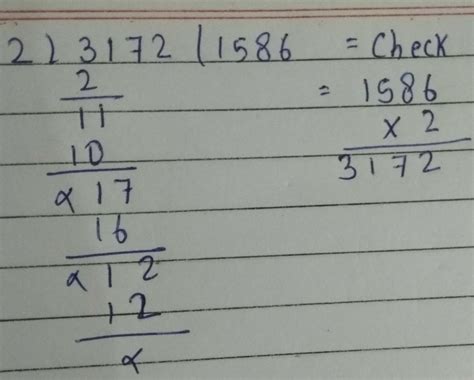 2 ) 3172 ( 1586 = Check
2 = 1586
11 × 2
10 3172
× 17
16
× 12
12
×